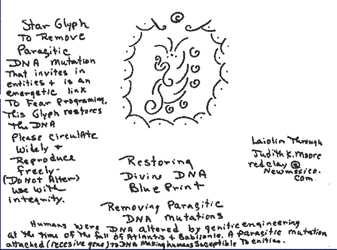 Star Glyph
To Remove
Parasitic
DNA Mutation
That invites in
entities + is an
energetic link
To Fear Programing,
This Glyph restores
the DNA
Please Circulate
Widely +
Reproduce
freely-
(Do Not Alter)
use with
integrity.
Restoring
Divine DNA
Blue Print
Removing Parasitic
DNA Mutations
Laiolin Through
Judith K. Moore
redclay@
Newmexico.
com
Humans were DNA altered by genitic engineering
at the time of the fall of Atlantis & Babilonia. A parasitic mutation
attached (recesive gene) to DNA making humans suseptible to enities.